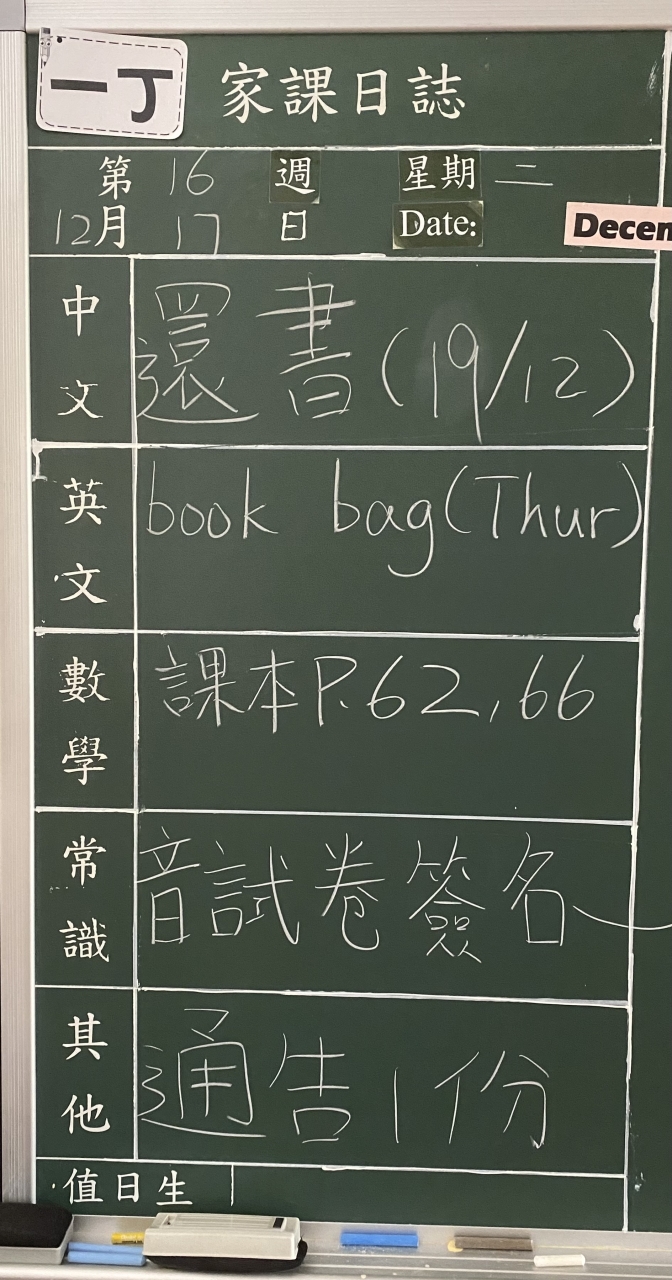 一丁 家課日誌
第 16 週 星期 二
12月 17 日 Date: Decem
中文 還書(19/12)
英文 book bag(Thur)
數學 課本P.62,66
常識 音試卷簽名
其他 通告1份
值日生